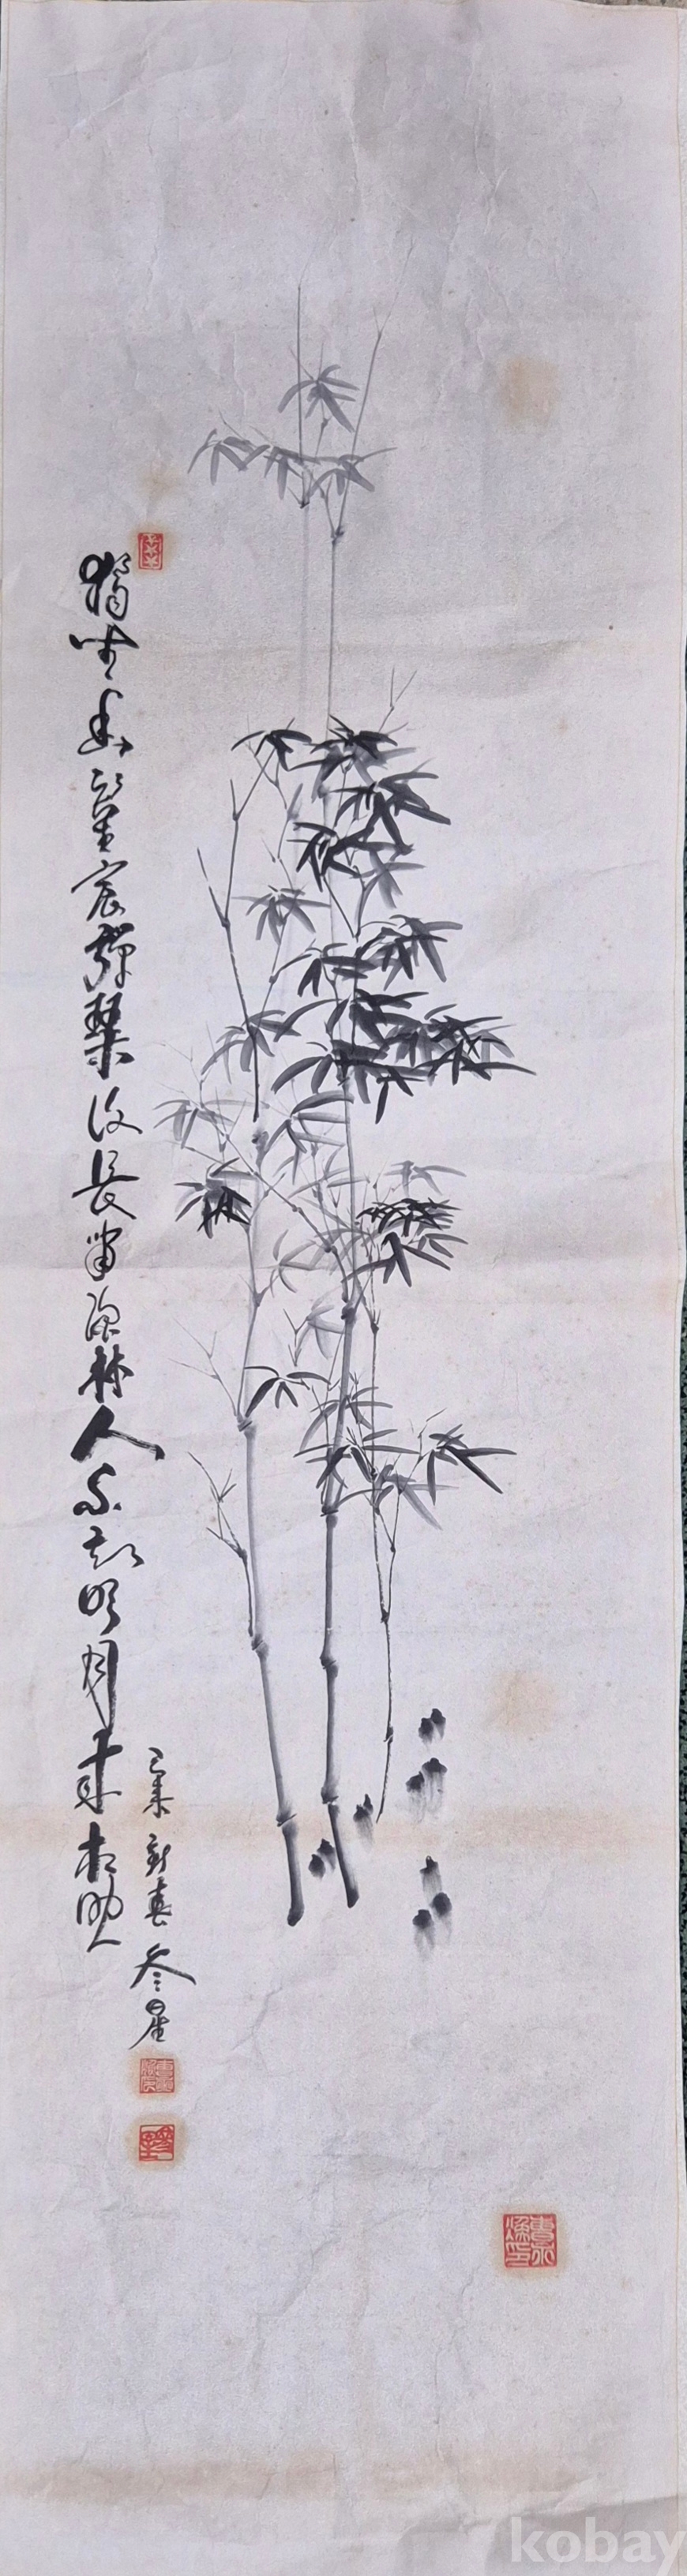 獨坐幽篁裏彈琴復長嘯深林人不知明月來相照
乙未新春 參星
kobay